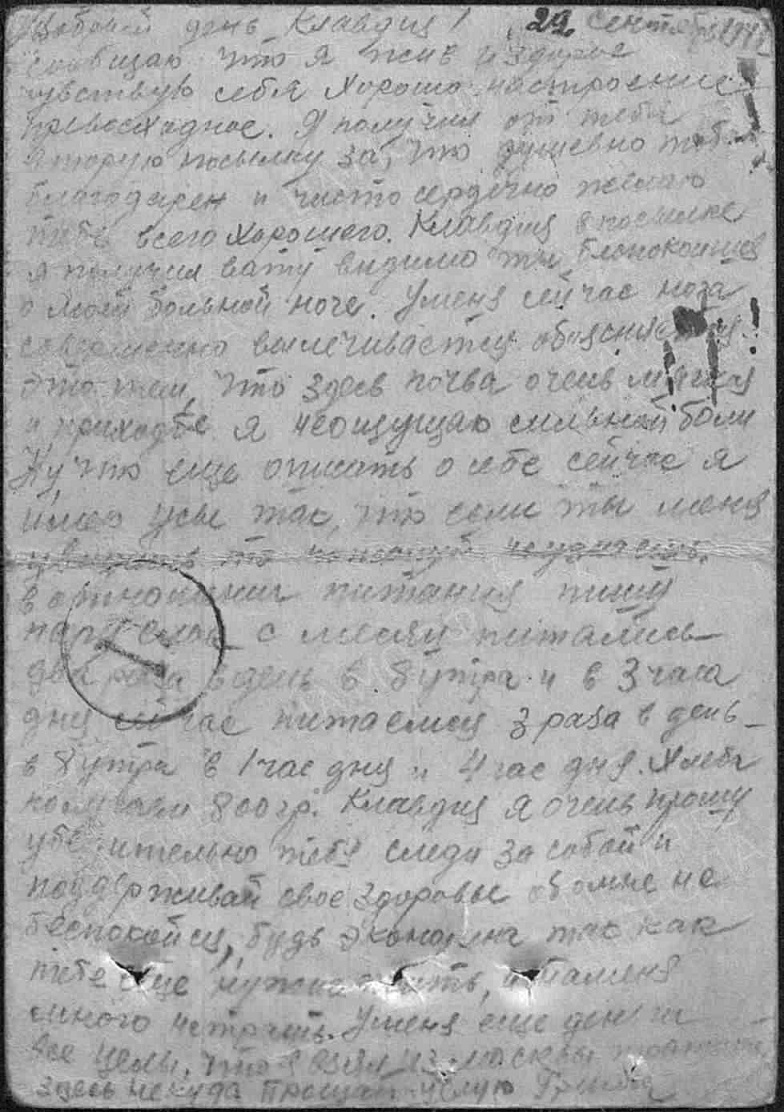 Добрый день Клавдия! 29 сентябрь
сообщаю что я жив и здоров
чувствую себя хорошо настроение
превосходное. Я получил от тебя
вторую посылку за, что душевно тебя
благодарен и чисто сердечно желаю
тебе всего хорошего. Клавдия в посылке
я получил вату видимо ты
о моей больной ноге. Уменя сейчас нога
совершенно вылечивается
это тем, что здесь почва очень мягкая
и приходьбе я неощущаю сильной боли
Ну что еще описать о себе сейчас я
имею усы так, что если ты меня
увидишь то
в отношении питания пишу
с месяц питались
два раза в день в 8 утра и в 3 часа
дня сейчас питаемся 3 раза в день
в 8 утра в 1 час дня и 4 час дня. Хлеба
получаем 800 гр. Клавдия я очень прошу
убедительно тебя следи за собой и
поддерживай свое здоровье обомне не
беспокойся, будь экономна так как
тебе еще нужно жить, и
много нетрать. Уменя еще деньги
все целы, что я взял из Москвы
здесь некуда Прощай целую Гриша